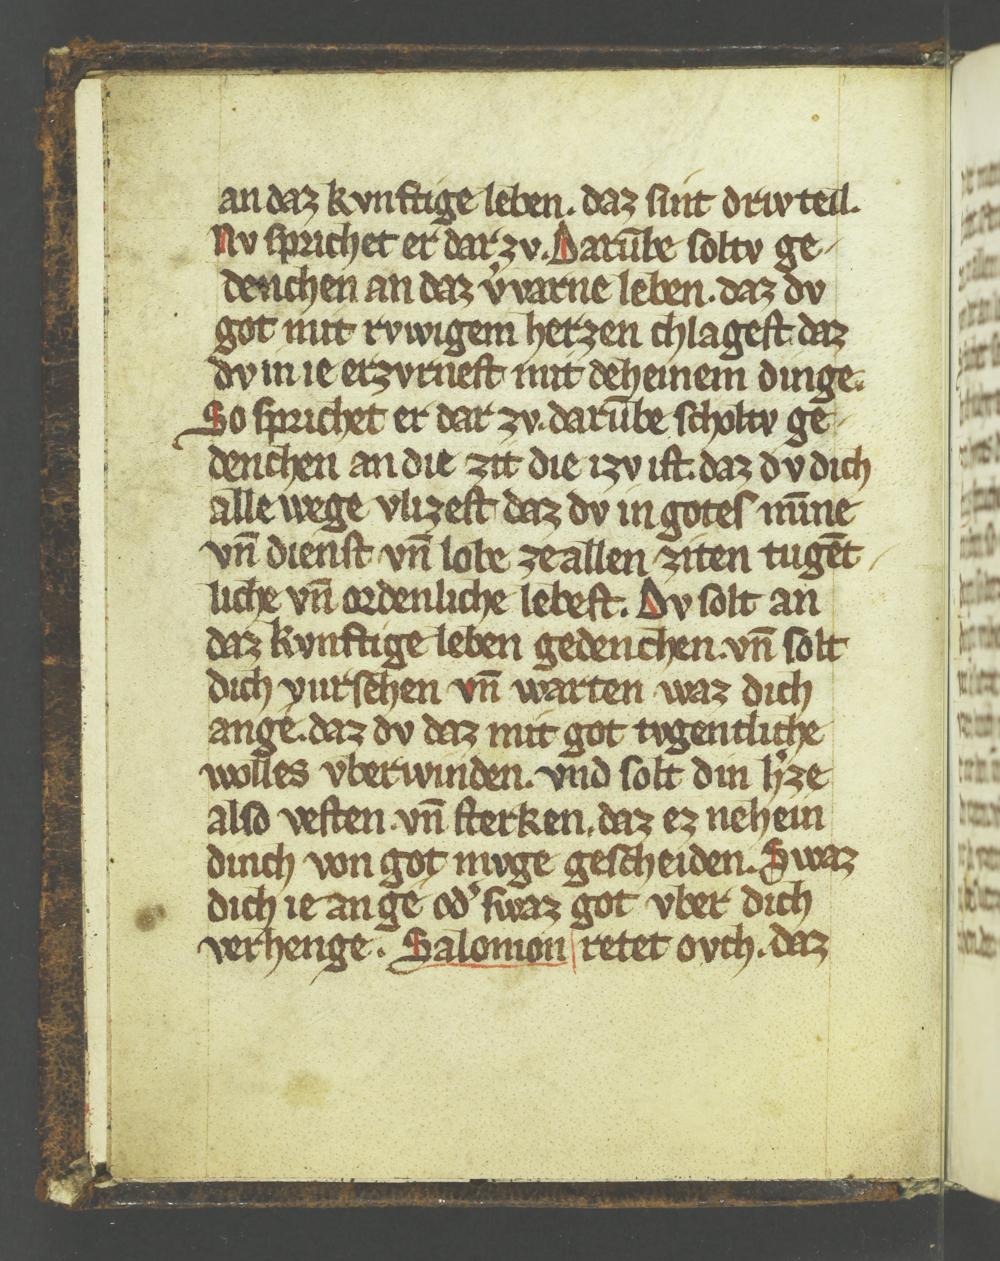 an daz kvnftige leben. daz sint driv teil.
Nv sprichet er dar zv. Darūbe soltv ge
denchen an daz v̓varne leben. daz dv
got mit rvwigem hertzen chlagest daz
dv in ie erzvrnest mit deheinem dinge.
So sprichet er dar zv. darūbe scholtv ge
denchen an die zit die izv ist. daz dv dich
alle wege vlizest daz dv in gotes mīne
vn̄ dienst vn̄ lobe ze allen ziten tugēt
liche vn̄ ordenliche lebest. Dv solt an
daz kvnftige leben gedenchen. vn̄ solt
dich vursehen vn̄ warten waz dich
ange. daz dv daz mit got tvgentliche
wolles vberwinden. vnd solt din h̓ze
also vesten. vn̄ sterken. daz ez nehein
dinch von got mvge gescheiden. Swaz
dich ie ange od̓ swaz got vber dich
verhenge. Salomon retet ovch. daz